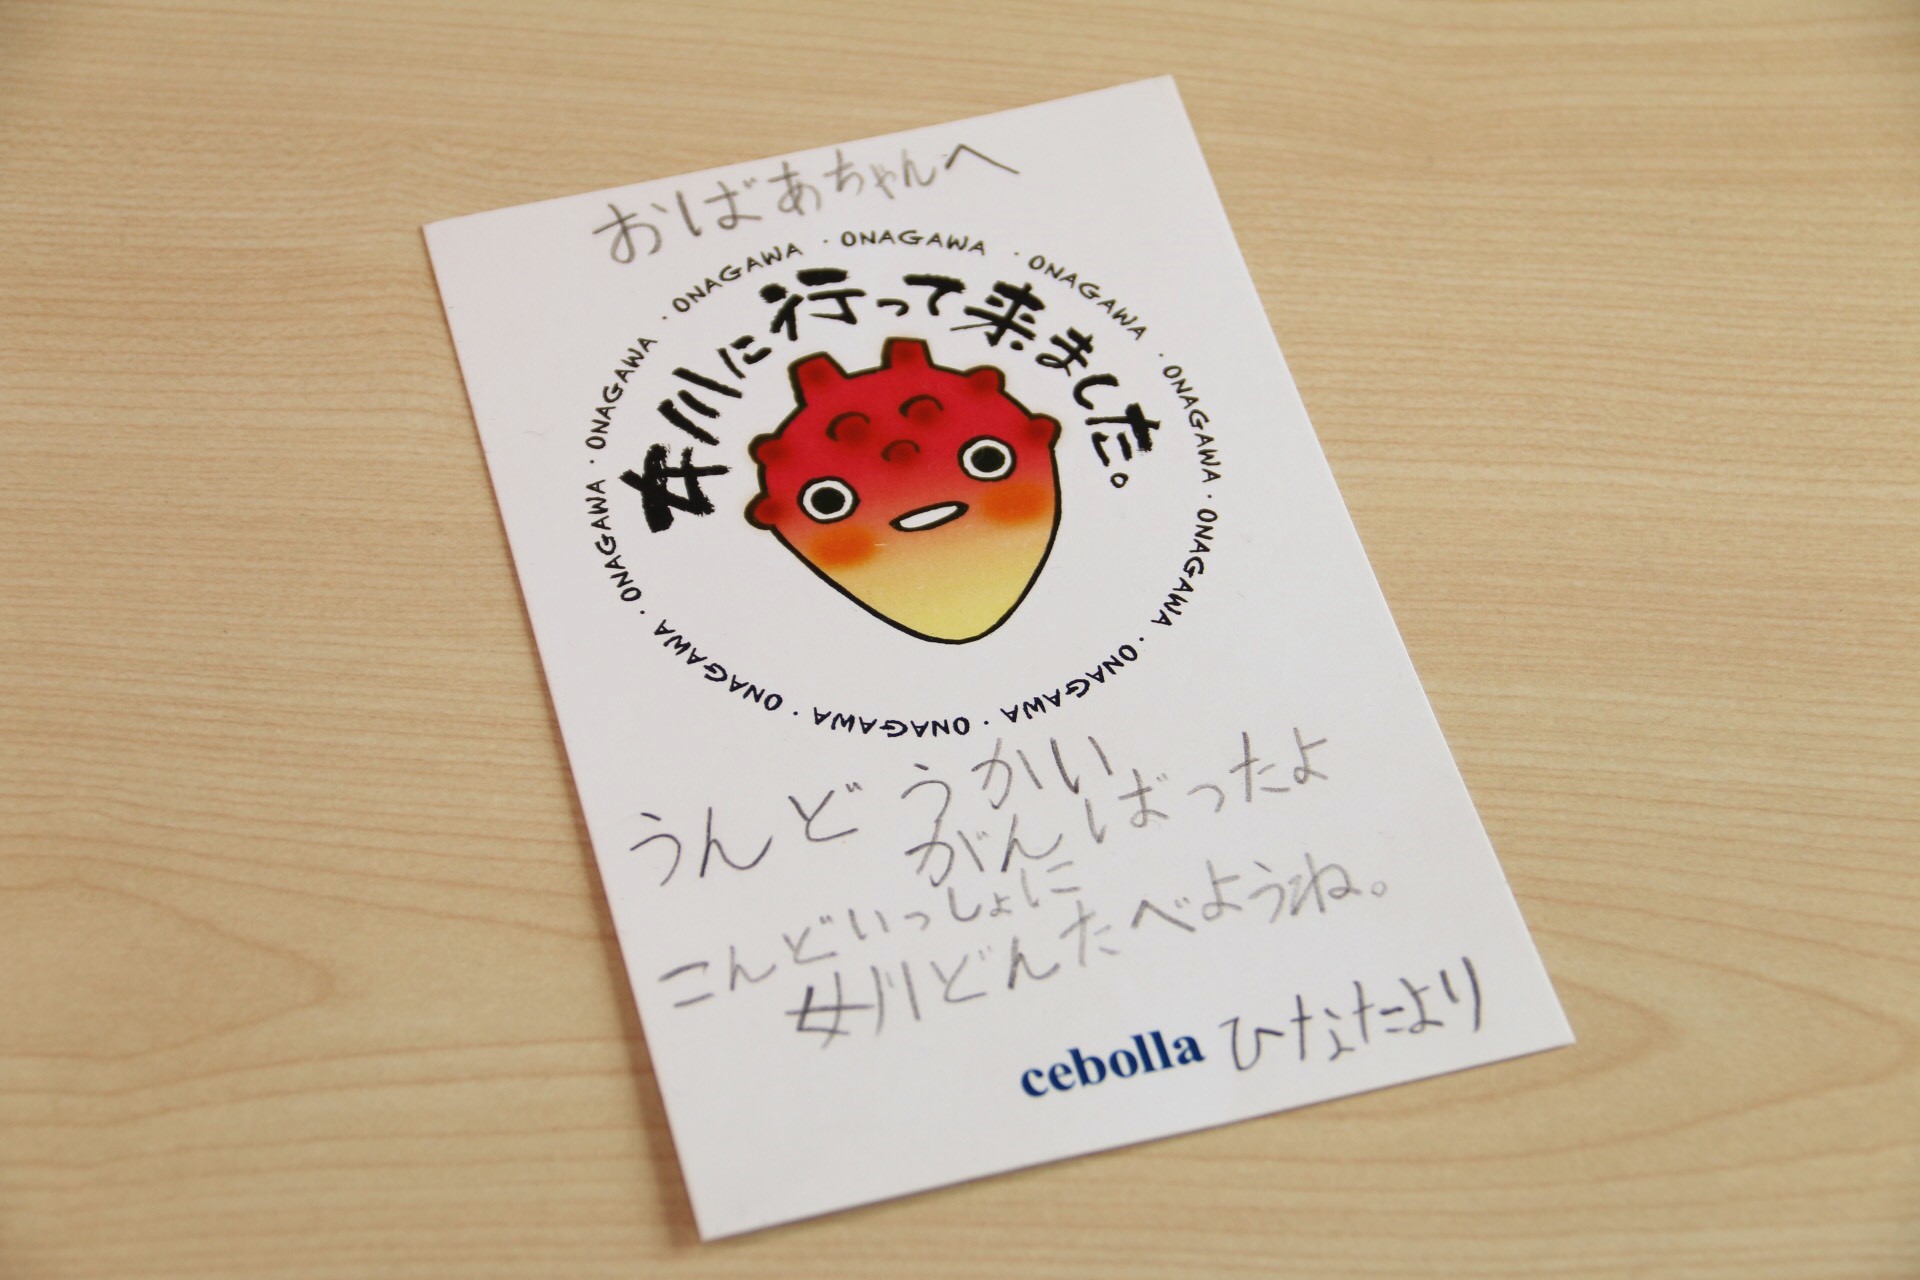 おばあちゃんへ
ONAGAWA · ONAGAWA · ONAGAWA · ONAGAWA · ONAGAWA · ONAGAWA · ONAGAWA · ONAGAWA · ONAGAWA · ONAGAWA ·
女川に行って来ました。
うんどうかい
がんばったよ
こんどいっしょに
女川どんたべようね。
cebolla ひなたより